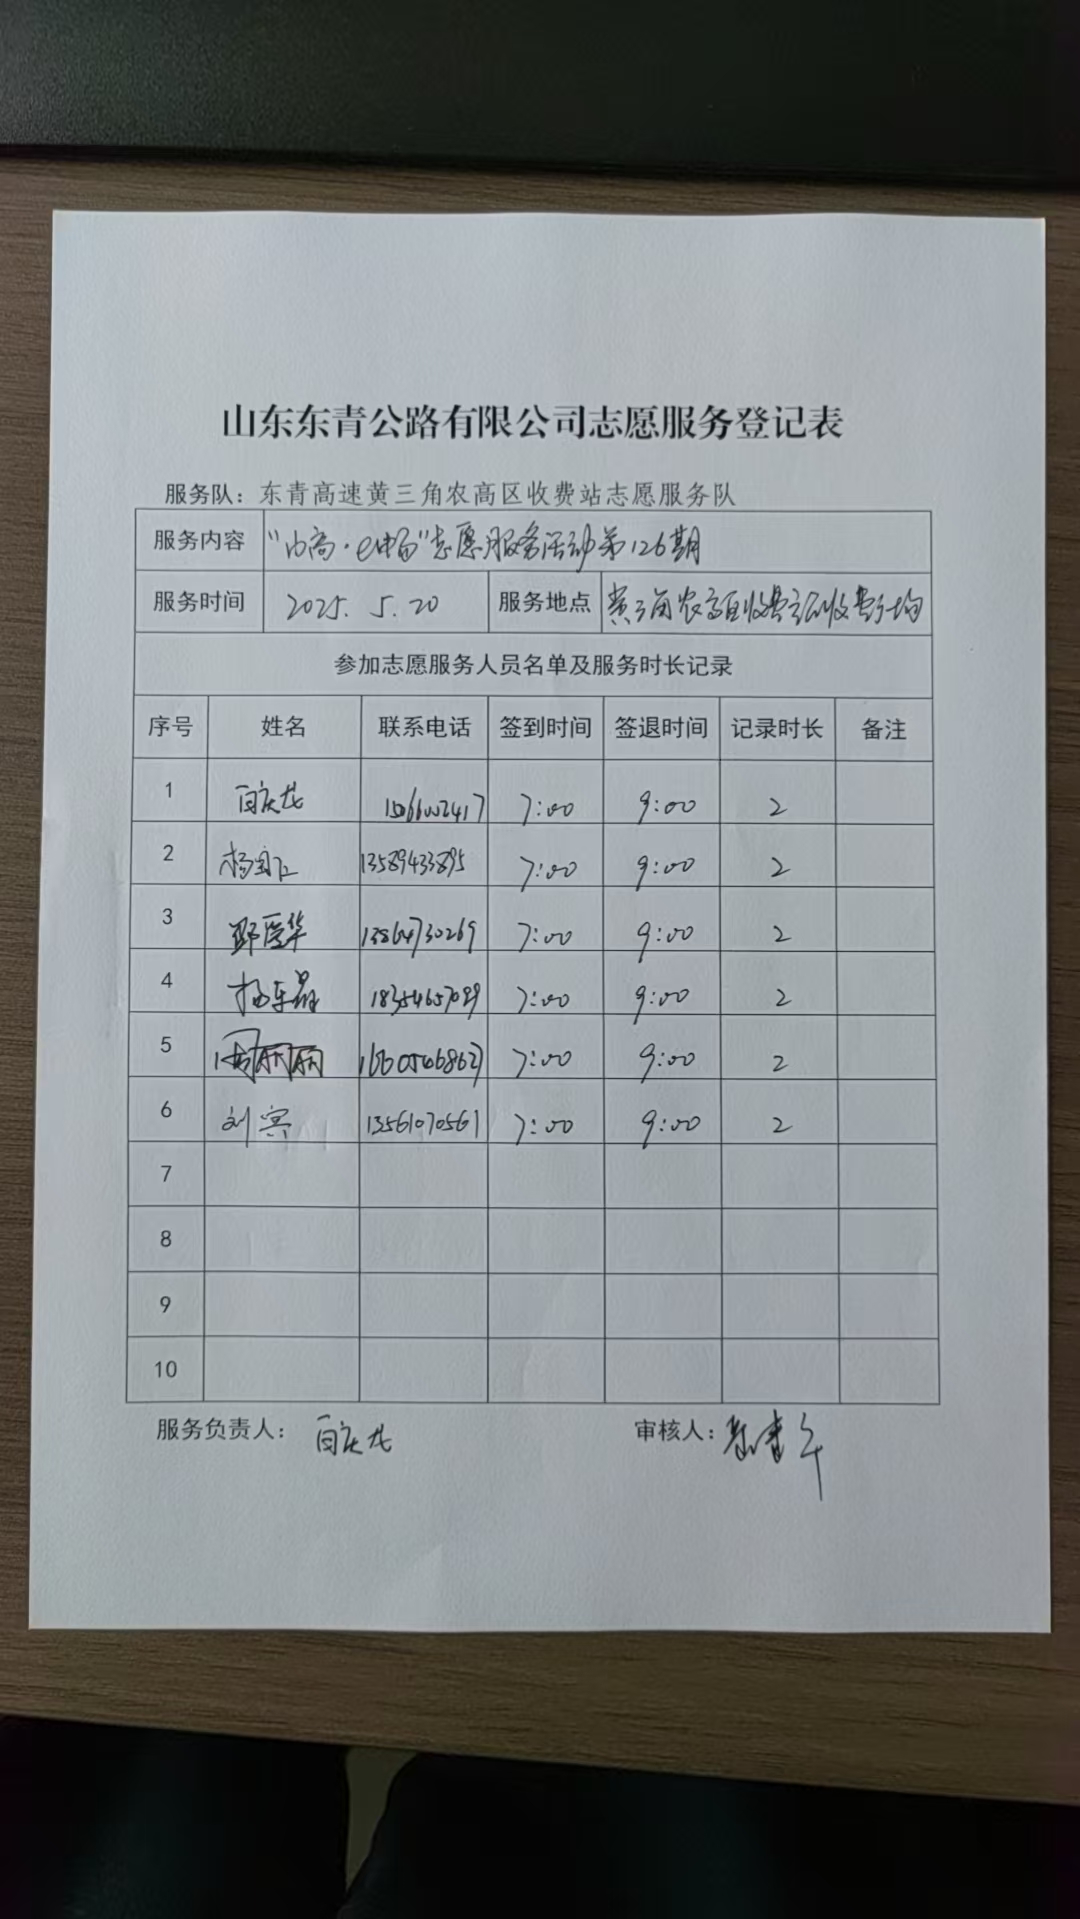 山东东青公路有限公司志愿服务登记表
服务队：东青高速黄三角农高区收费站志愿服务队
服务内容 "山高·e畅"志愿服务活动第126期
服务时间 2025.5.20 服务地点 黄三角农高区收费站收费广场
参加志愿服务人员名单及服务时长记录
序号 姓名 联系电话 签到时间 签退时间 记录时长 备注
1 7:00 9:00 2
2 13589433895 7:00 9:00 2
3 13864730269 7:00 9:00 2
4 18354657099 7:00 9:00 2
5 周丽丽 7:00 9:00 2
6 刘宾 13561070561 7:00 9:00 2
7
8
9
10
服务负责人： 审核人：